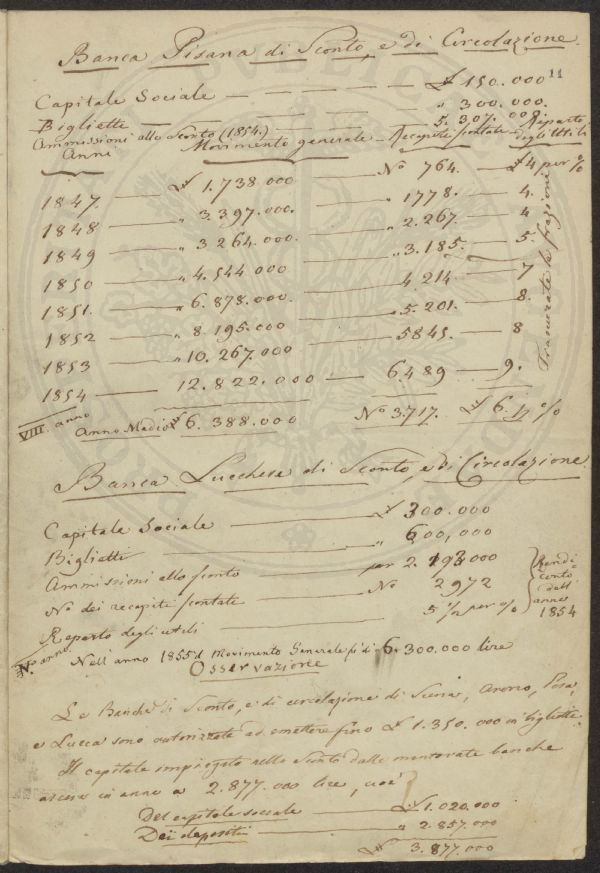 Banca Pisana di Sconto, e di Circolazione.
11
Capitale Sociale — — — — — £ 150.000
Biglietti — — — — — " 300.000.
Ammissioni allo Sconto (1854.) — 5. 307. 008;
Anni Movimento generale Recapiti scontati Reparto degli Utili
1847. — £ 1.738 000 — No 764. — £ 4 per %
1848 — " 3.397.000. — " 1778. — 4.
1849 — " 3 264.000. — " 2.267 — 4
1850 — " 4.544 000 — " 3.185. — 5.
1851. — " 6.878.000. — 4.214 — 7
1852 — " 8.195.000 — " 5.201. — 8.
1853 — " 10.267.000 — 5845. — 8
1854 — 12.822.000 — 6489 — 9.
le frazioni
VIII. anno Anno Medio £ 6.388.000 No 3.717. £ 6. %
Banca Lucchese di Sconto, e di Circolazione.
Capitale Sociale — £ 300.000
Biglietti — " 600,000
Ammissioni allo sconto — per 2.193.000
No dei recapiti scontati — No 2972
Reparto degli utili — 5 1/2 per %
Rendi
conto
dell'
anno
1854
anno Nell'anno 1855 il Movimento Generale fù di 6.300.000 lire
Osservazione
Le Banche di Sconto, e di circolazione di Siena, Arezzo, Pisa,
e Lucca sono autorizzate ad emettere fino £ 1.350.000 in biglietti.
Il capitale impiegato nello Sconto dalle mentovate banche
ascese in anno a 2.877.000 lire, cioè
Del capitale sociale — £ 1.020,000
Dei depositi — " 2.857.000
£ 3.877.000